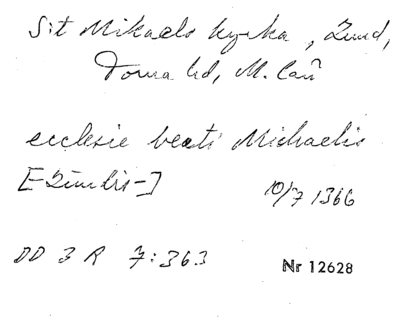 S:t Mikaels kyrka, Lund,
Torna hd, M. län
ecclesie beati Michaelis
10/7 1366
DD 3 R 7:363
Nr 12628